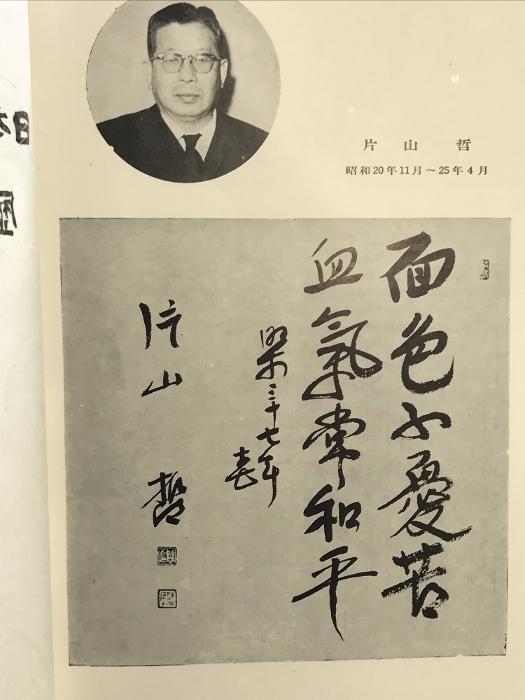 片山 哲
昭和20年11月～25年4月
面色不憂苦
血氣常和平
三十七年
片山 哲